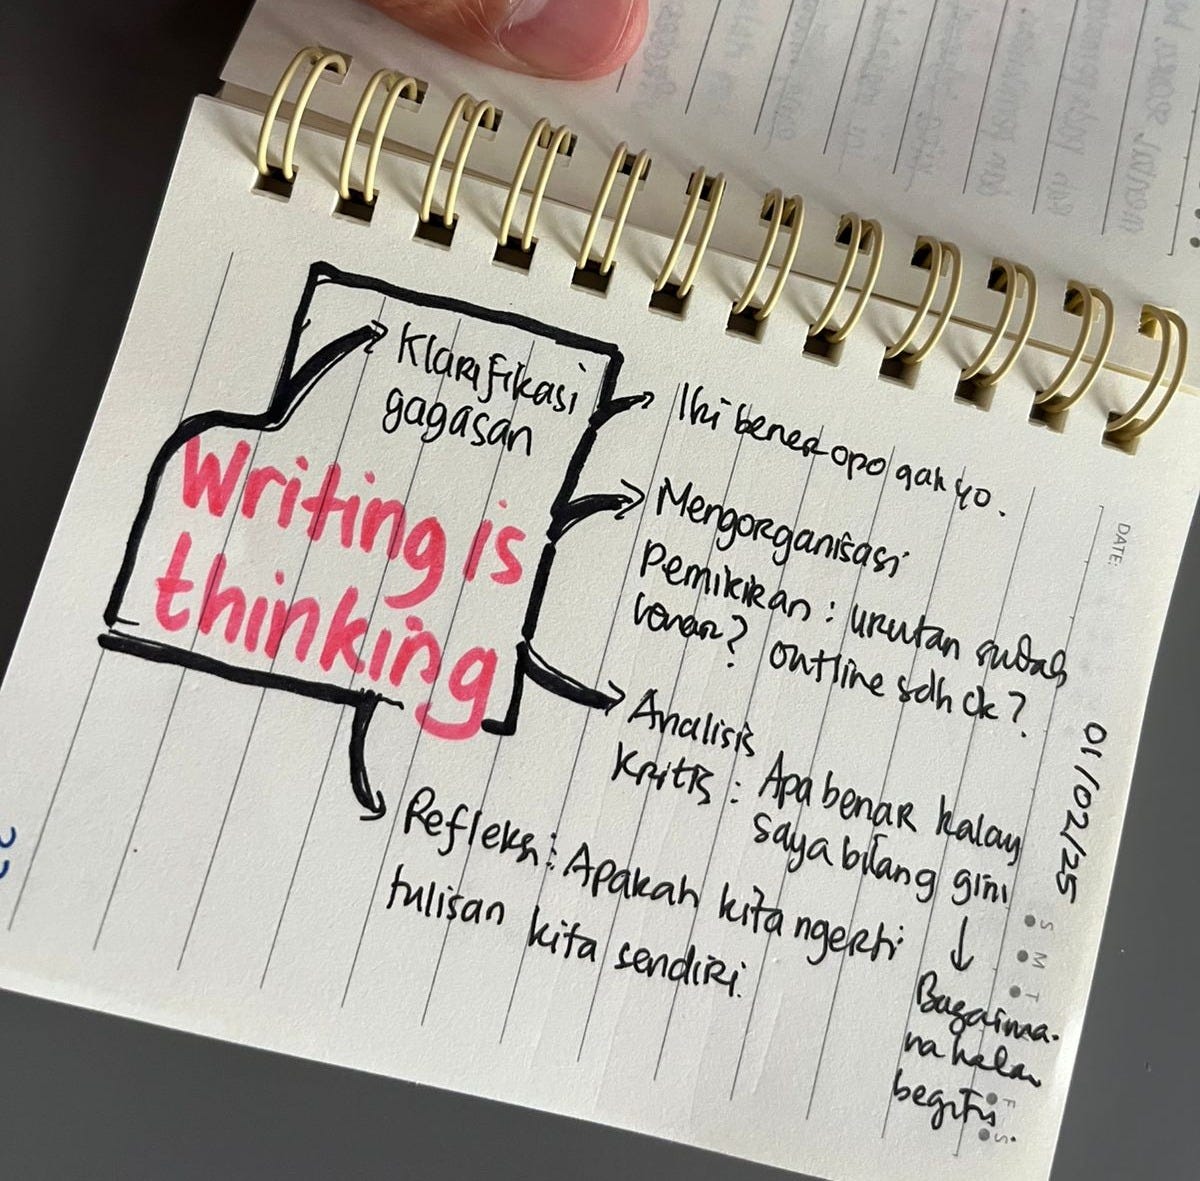 Klarifikasi
gagasan
Writing is
thinking
Iki bener opo gak yo.
Mengorganisasi
Pemikiran : urutan sudah
benar? outline sdh ok?
Analisis
Kritis : Apa benar kalau
saya bilang gini
↓
Bagaima-
na kalau
begitu
Refleksi : Apakah kita ngerti
tulisan kita sendiri.
DATE:
01/02/25
S
M
T
F
S